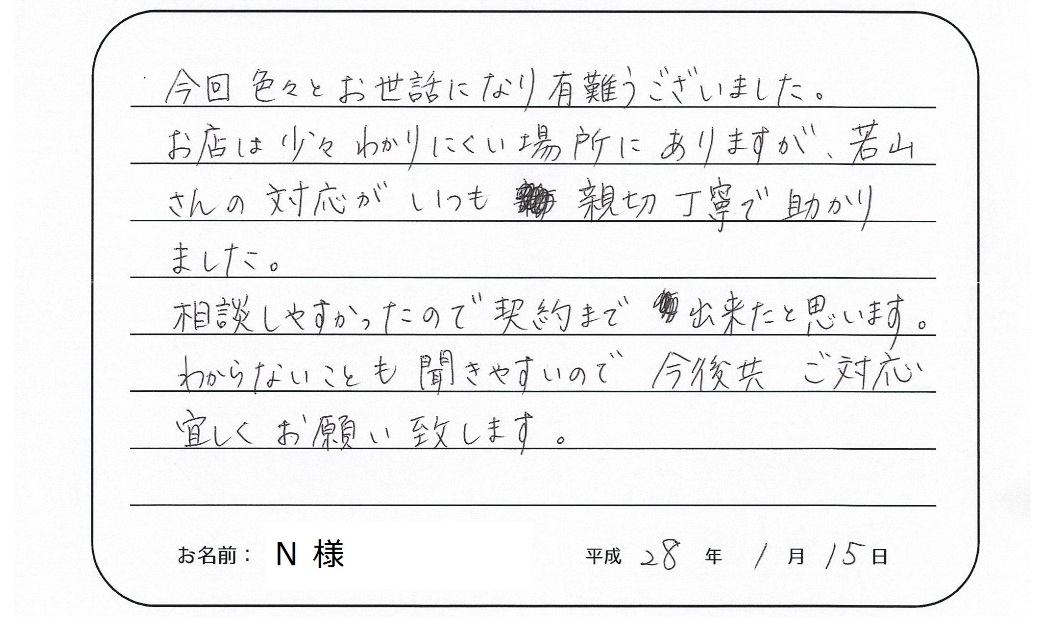 今回色々とお世話になり有難うございました。
お店は少々わかりにくい場所にありますが、若山
さんの対応がいつも親切丁寧で助かり
ました。
相談しやすかったので契約まで出来たと思います。
わからないことも聞きやすいので今後共ご対応
宜しくお願い致します。
お名前： N 様 平成 28 年 1 月 15 日